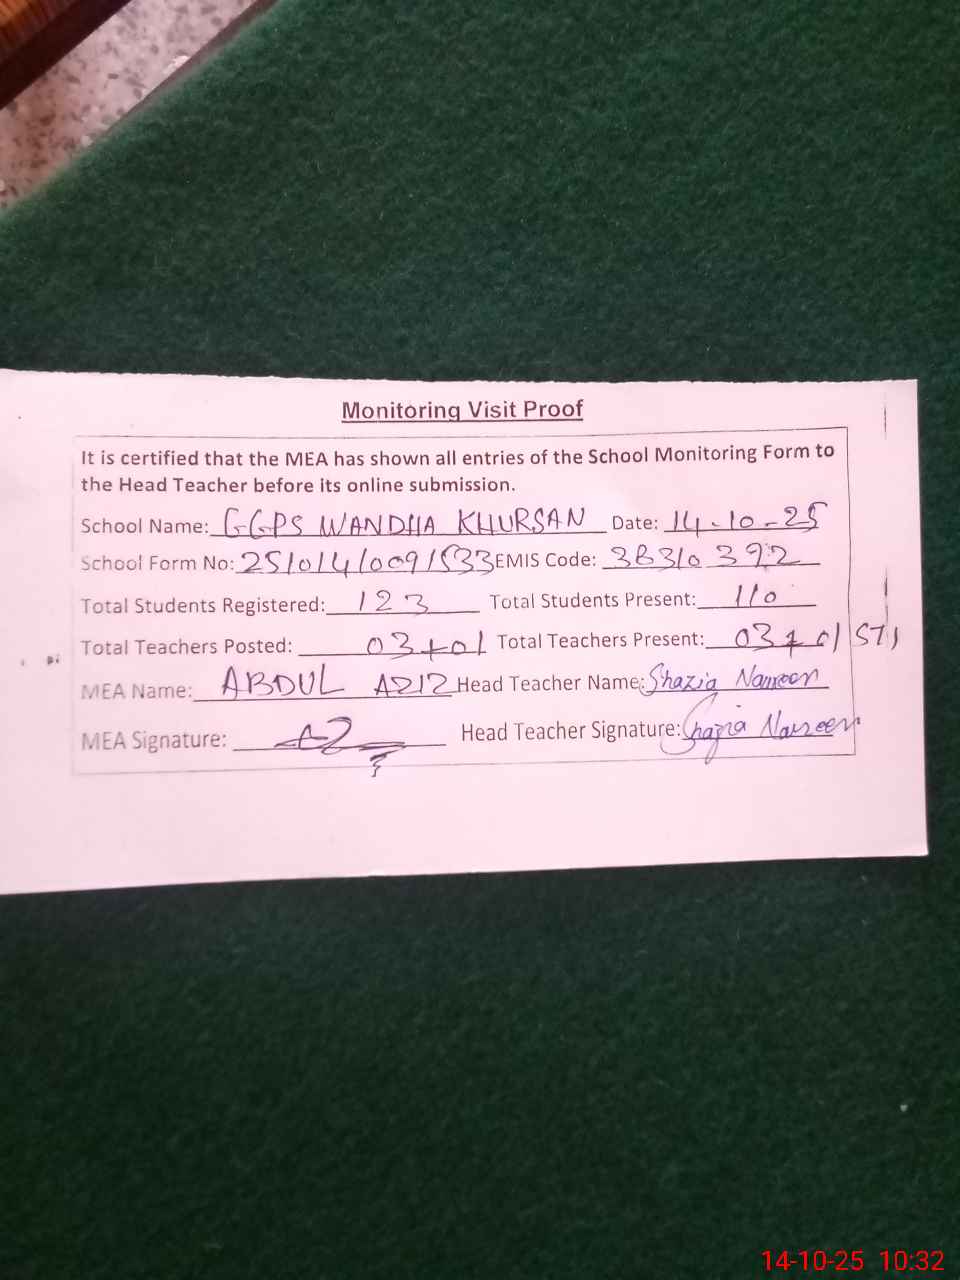 Monitoring Visit Proof
It is certified that the MEA has shown all entries of the School Monitoring Form to
the Head Teacher before its online submission.
School Name: GGPS WANDHA KHURSAN Date: 14-10-25
School Form No: 251014/0091533 EMIS Code: 38310392
Total Students Registered: 123 Total Students Present: 110
Total Teachers Posted: 03+01 Total Teachers Present: 03+01 STI
MEA Name: ABDUL AZIZ Head Teacher Name: Shazia Nasreen
MEA Signature: Head Teacher Signature: Shazia Nasreen
14-10-25 10:32